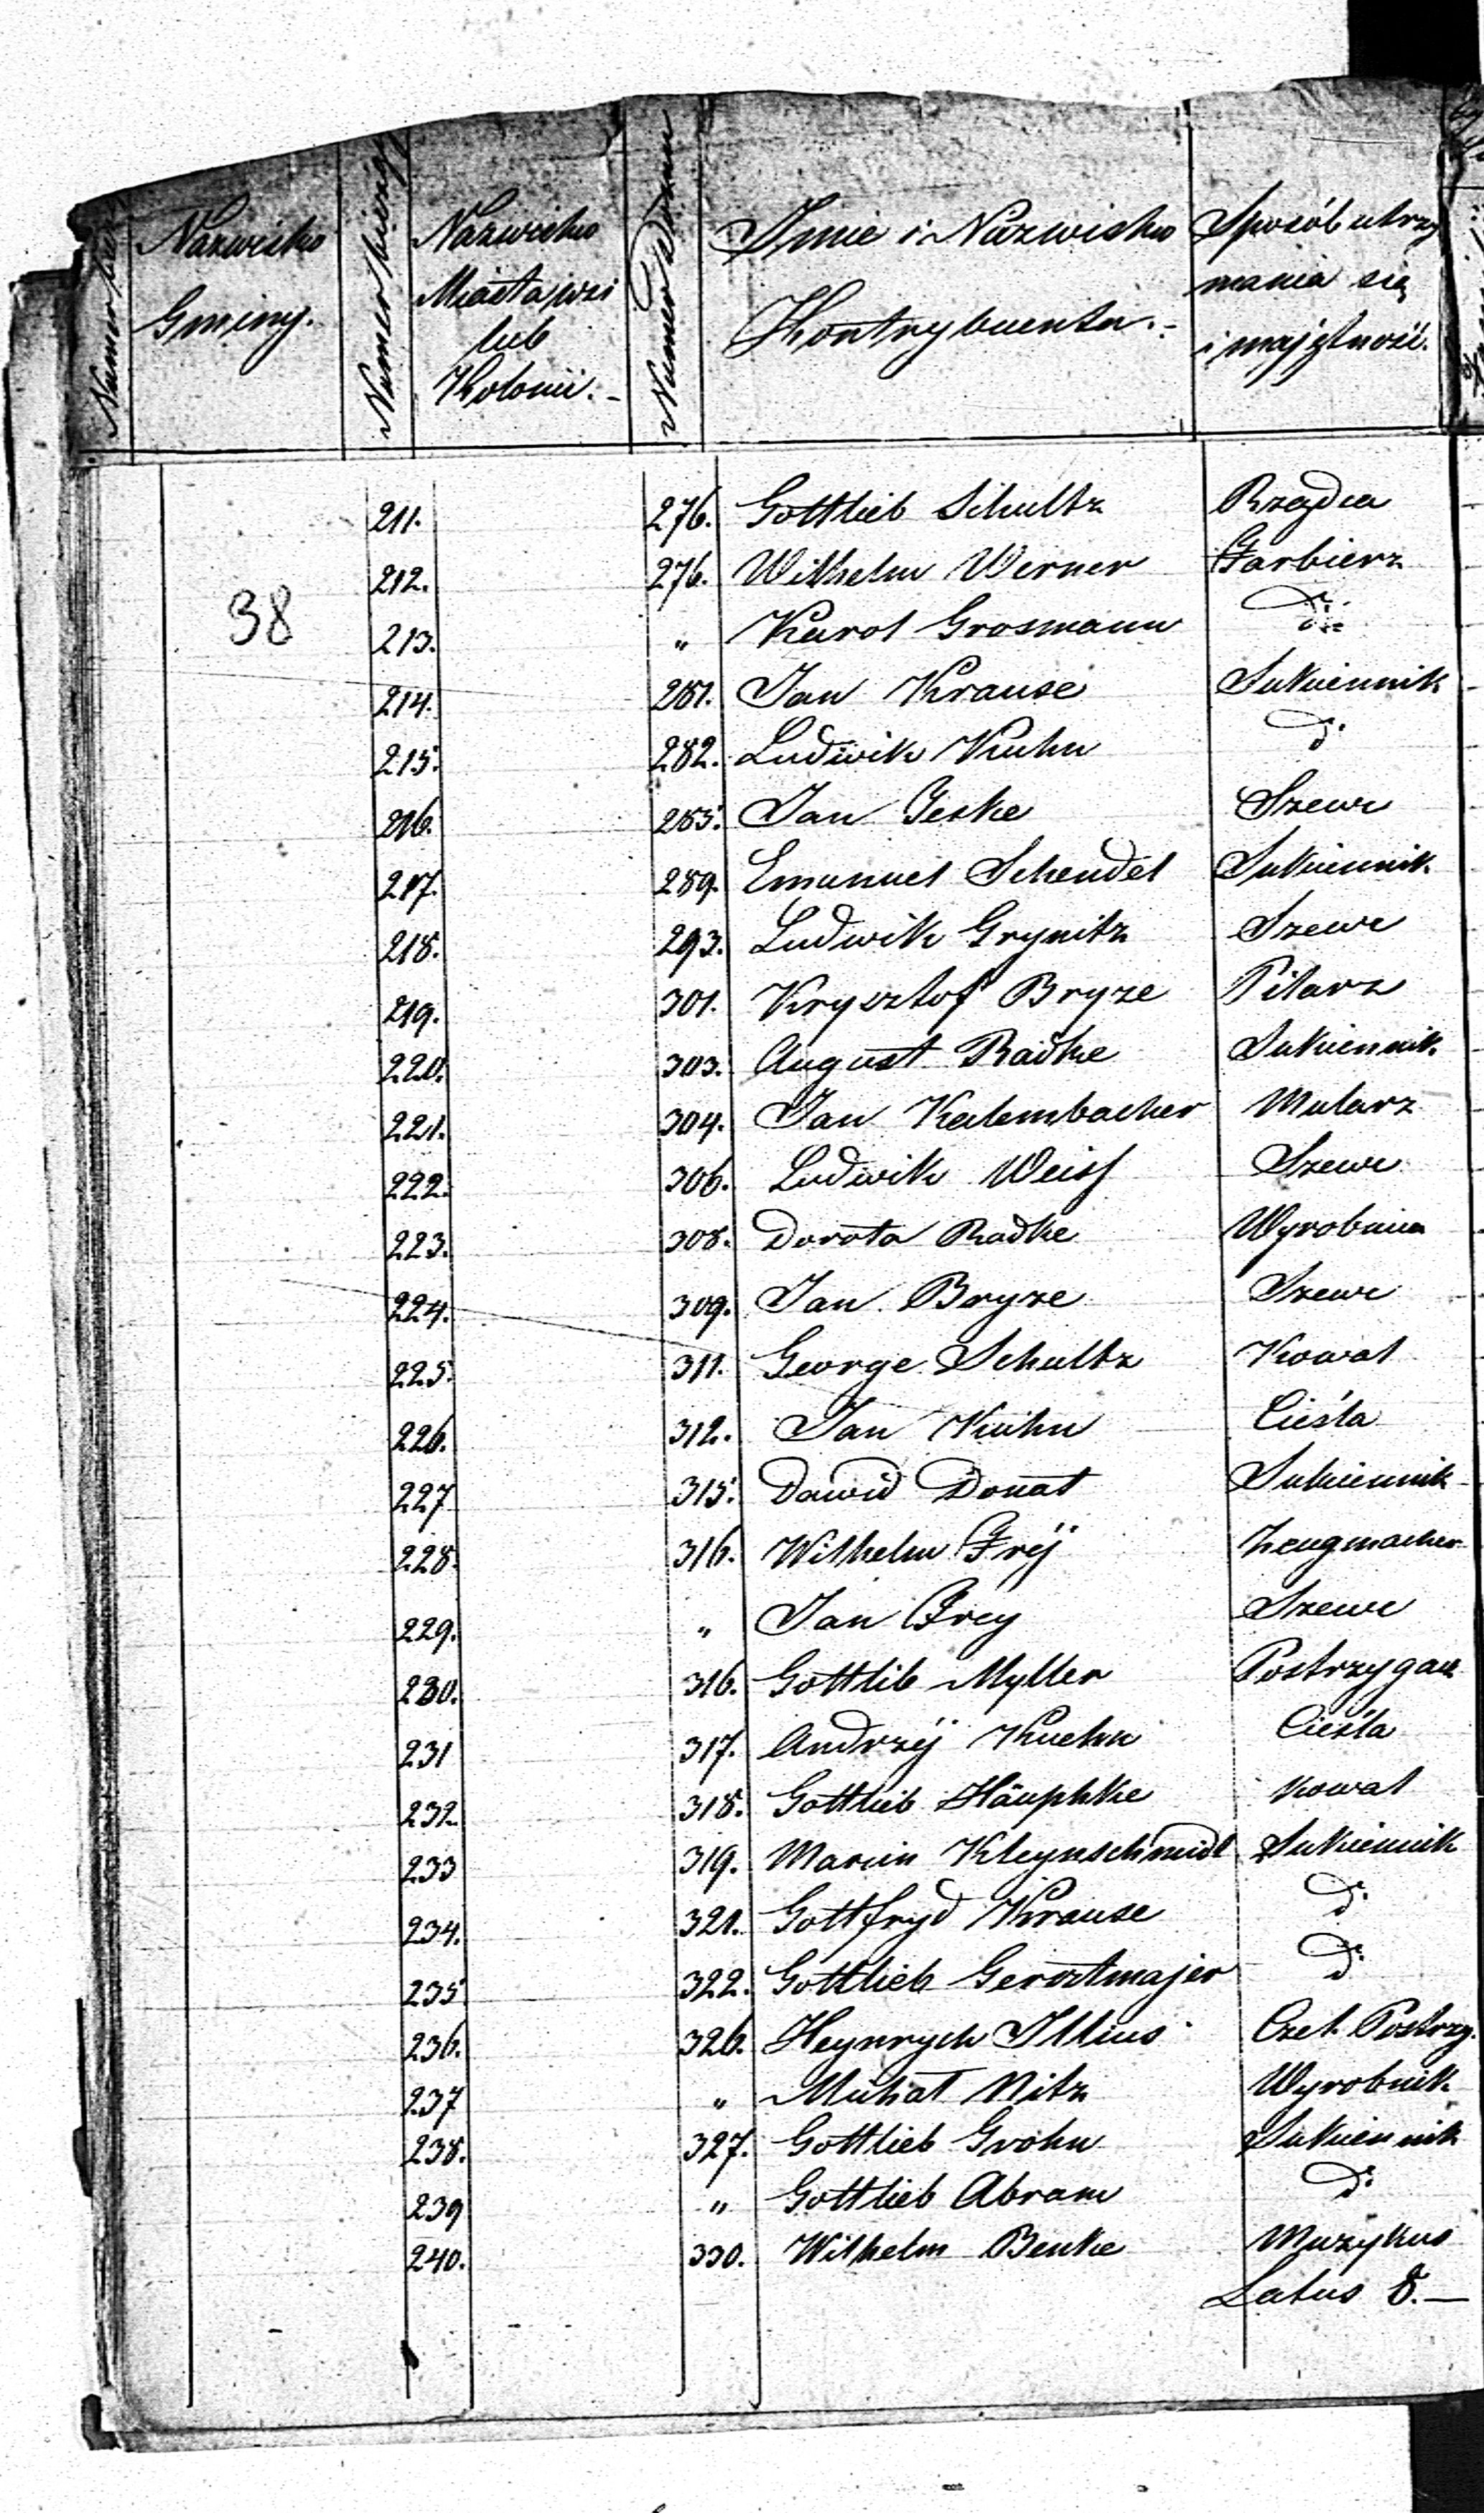 Nazwisko Gminy.
Numer bieżący
Nazwisko Miasta, wsi lub Kolonii.-
Numer Domu
Imie i Nazwisko Kontrybuenta.-
Sposób utrzymania się i majętność.
38
211. 276. Gottlieb Schultz Rządca
212. 276. Wilhelm Werner Garbierz
213. " Karol Grosmann do
214. 281. Jan Krause Sukiennik
215. 282. Ludwik Kuhn do
216. 285. Jan Jeske Szewc
217. 289. Emanuel Schendel Sukiennik.
218. 293. Ludwik Grynitz Szewc
219. 301. Krysztof Bryze Pilarz
220. 303. August Radke Sukiennik.
221. 304. Jan Kalembacher Mularz
222. 306. Ludwik Weiss Szewc
223. 308. Dorota Radke Wyrobnica
224. 309. Jan Bryze Szewc
225. 311. George Schultz Kowal
226. 312. Jan Kuhn Cieśla
227 315. Dawid Donat Sukiennik
228. 316. Wilhelm Frÿ Zeugmacher
229. " Jan Frey Szewc
230. 316. Gottlib Myller Postrzygacz
231 317. Andrzÿ Kuehn Cieśla
232. 318. Gottlieb Häuphke Kowal
233 319. Marcin Kleynschmidt Sukiennik
234. 321. Gottfryd Krause do
235 322. Gottlieb Gerstmajer do
236. 326. Heynrych Illius Czel. Postrzy.
237 " Michał Nitz Wyrobnik
238. 327. Gottlieb Grohn Sukiennik
239 " Gottlieb Abram do
240. 330. Wilhelm Benke Muzykus
Latus 8.—